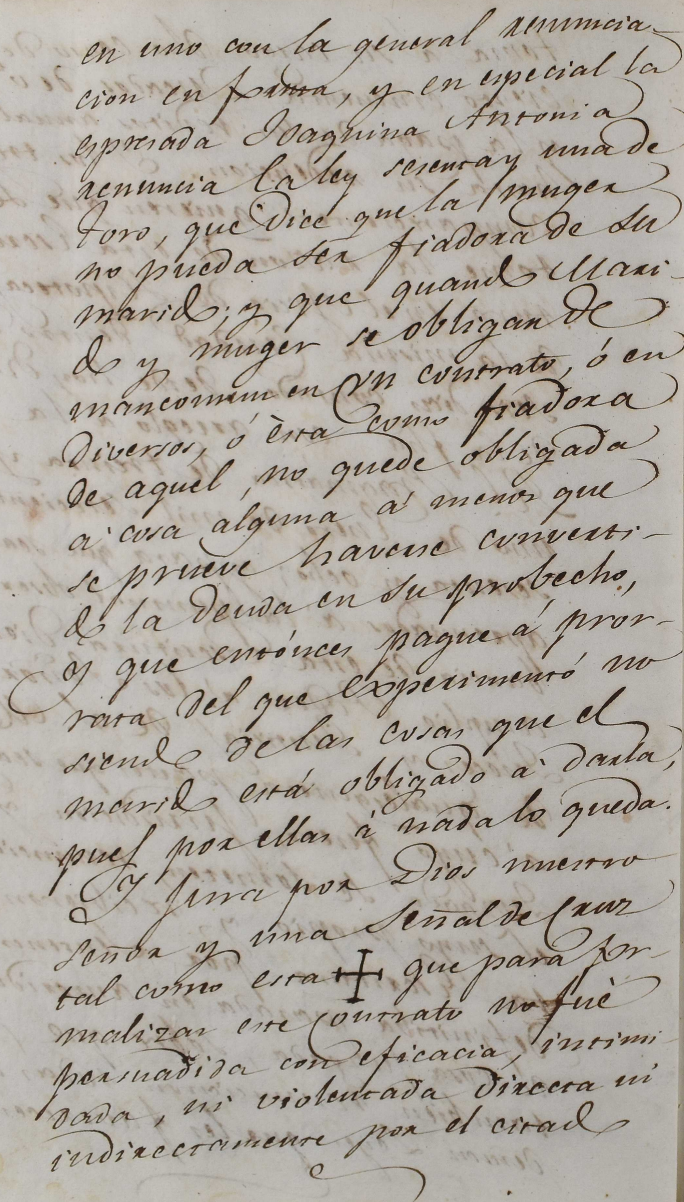 en uno con la general renuncia-
cion en forma, y en especial la
espresada Joaquina Antonia
renuncia la ley sesenta y una de
Toro, que dice que la muger
no pueda ser fiadora de su
marido; y que quando Mari-
do y muger se obligan de
mancomun en un contrato, ó en
diversos, ó èsta como fiadora
de aquel, no quede obligada
a cosa alguna á menos que
se prueve haverse converti-
do la deuda en su probecho,
y que entónces pague á pror-
rata del que experimentó no
siendo de las cosas que el
marido está obligado à darla,
pues por ellas à nada lo queda.
Y jura por Dios nuestro
señor y una Señal de Cruz
tal como esta + que para for-
malizar este Contrato no fuè
persuadida con eficacia, intimi-
dada, ni violentada directa ni
indirectamente por el citado